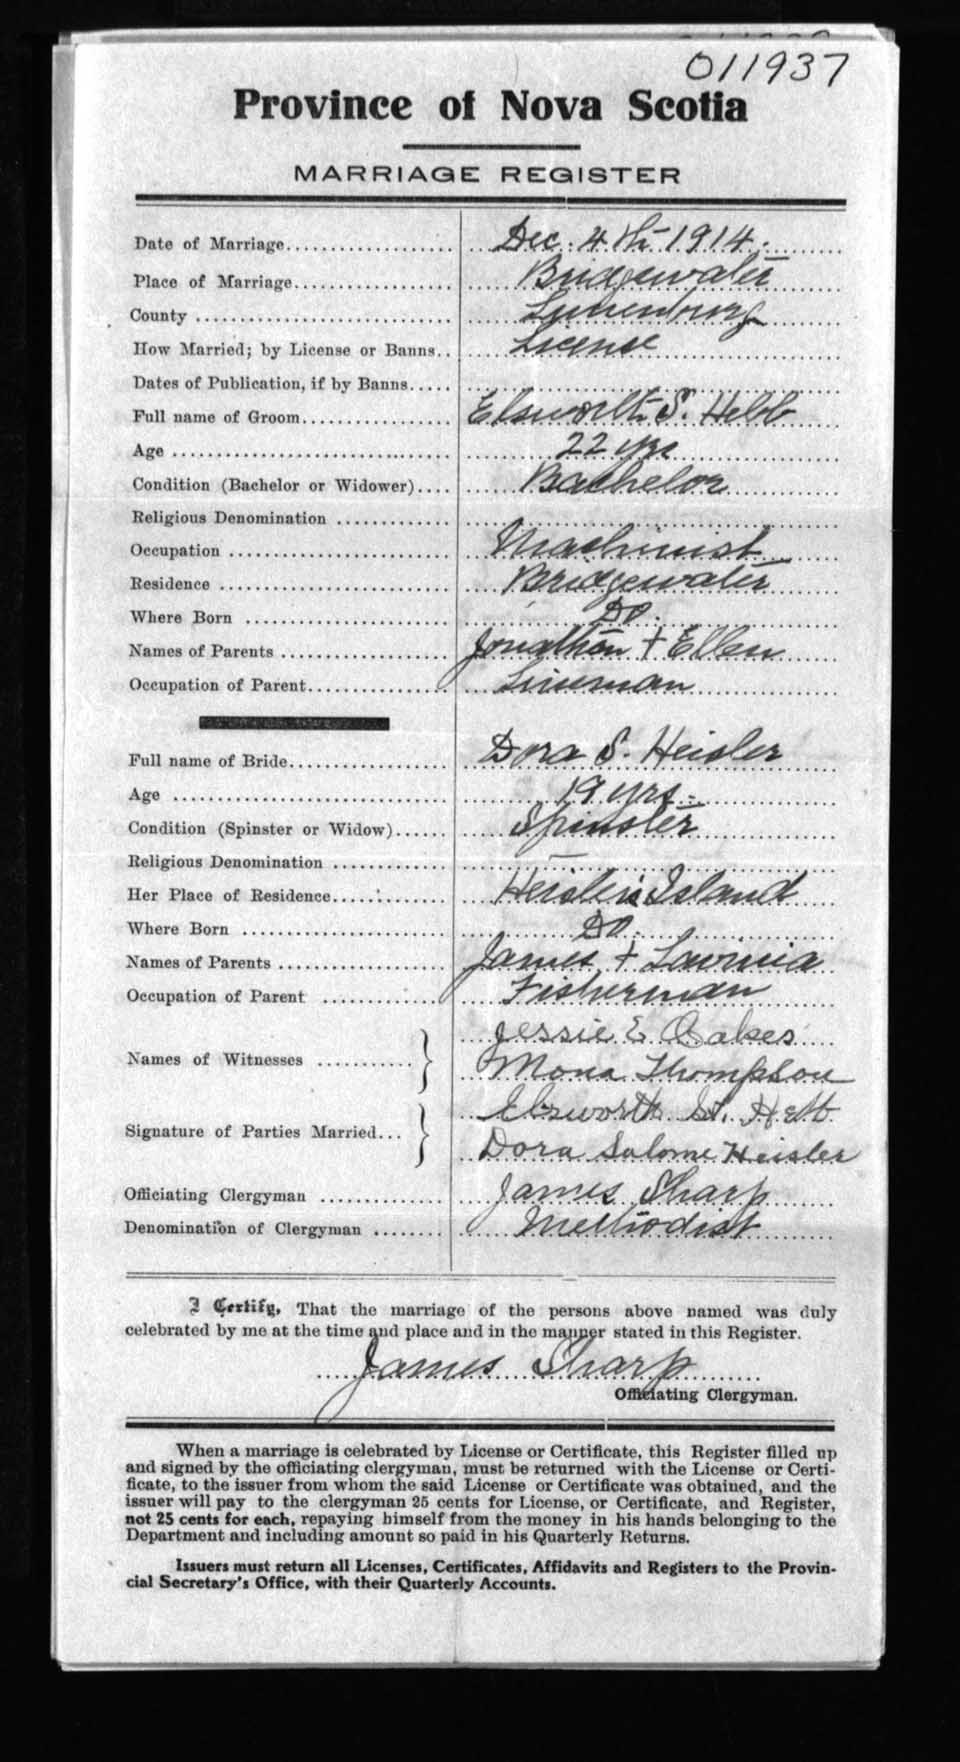 011937
Province of Nova Scotia
MARRIAGE REGISTER
Date of Marriage.................. Dec. 4th 1914.
Place of Marriage.................. Bridgewater
County .................. Lunenburg
How Married; by License or Banns.. License
Dates of Publication, if by Banns.....
Full name of Groom.................. Elsworth S. Hebb
Age .................. 22 yrs
Condition (Bachelor or Widower).... Bachelor
Religious Denomination ..................
Occupation .................. Machinist
Residence .................. Bridgewater
Where Born .................. Do.
Names of Parents .................. Jonathan + Ellen
Occupation of Parent.................. Lineman
Full name of Bride.................. Dora S. Heisler
Age .................. 19 yrs.
Condition (Spinster or Widow)...... Spinster
Religious Denomination ..................
Her Place of Residence.................. Heisler's Island
Where Born .................. Do.
Names of Parents .................. James + Lavinia
Occupation of Parent .................. Fisherman
Jessie E Oakes
Names of Witnesses ............ }
Mona Thompson
Elsworth St. Hebb
Signature of Parties Married... }
Dora Salome Heisler
Officiating Clergyman .................. James Sharp
Denomination of Clergyman ........ Methodist
I Certify, That the marriage of the persons above named was duly
celebrated by me at the time and place and in the manner stated in this Register.
James Sharp
Officiating Clergyman.
When a marriage is celebrated by License or Certificate, this Register filled up
and signed by the officiating clergyman, must be returned with the License or Certi-
ficate, to the issuer from whom the said License or Certificate was obtained, and the
issuer will pay to the clergyman 25 cents for License, or Certificate, and Register,
not 25 cents for each, repaying himself from the money in his hands belonging to the
Department and including amount so paid in his Quarterly Returns.
Issuers must return all Licenses, Certificates, Affidavits and Registers to the Provin-
cial Secretary's Office, with their Quarterly Accounts.